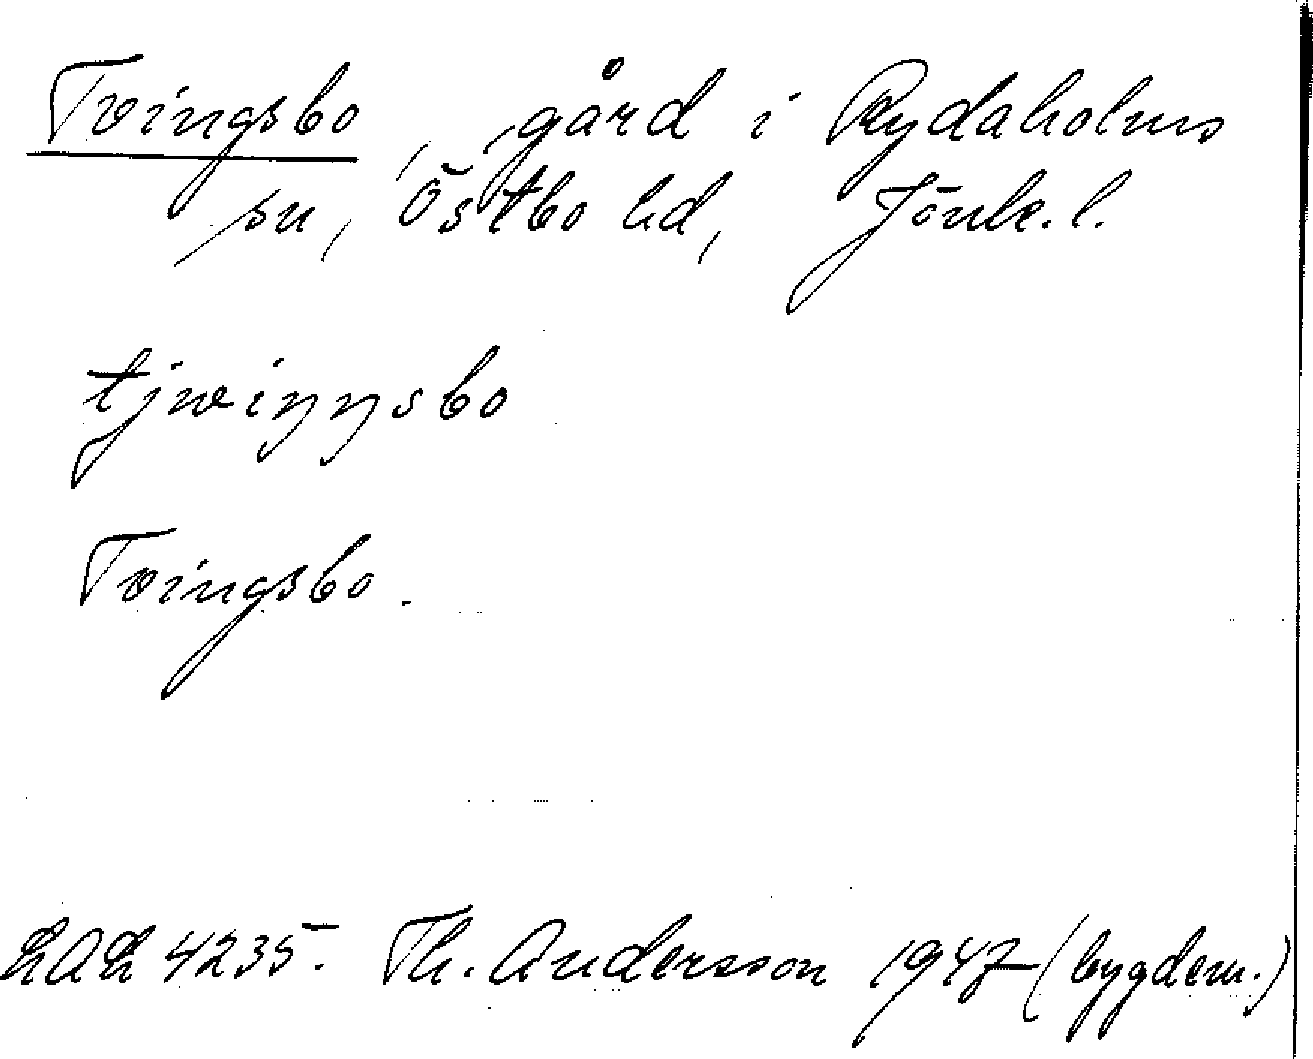 Tvingsbo, gård i Rydaholms
sn, Östbo hd, Jönk. l.
tjwiŋŋsbo
Tvingsbo.
LAL 4235. Th. Andersson 1947 (bygdem.)